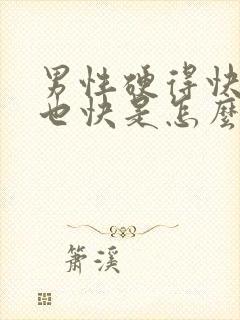 男性硬得快
也快是怎麼
簫溪